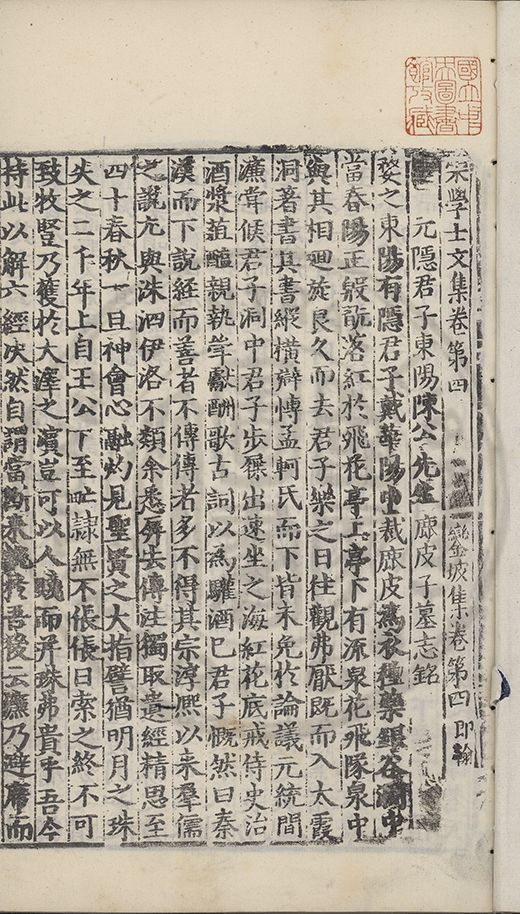 國立中央圖書館收藏
宋學士文集卷第四 鑾坡集卷第四 即翰
元隱君子東陽陳公先生鹿皮子墓志銘
婺之東陽有隱君子戴華陽巾裁鹿皮為衣種藥銀谷澗中
當春陽正殷訛落紅於飛花亭上亭下有流泉花飛隊泉中
與其相廻旋良久而去君子樂之日往觀弗厭既而入太霞
洞著書其書縱橫辯博孟軻氏而下皆未免於論議元統間
濂嘗候君子洞中君子步屧出速坐之海紅花底戒侍史治
酒漿菹醢親執斝獻酬歌古詞以為驩酒已君子慨然曰秦
漢而下說經而善者不傳傳者多不得其宗淳熙以來羣儒
之說尤與洙泗伊洛不類余悉屏去傳注獨取遺經精思至
四十春秋一旦神會心融灼見聖賢之大指譬猶明月之珠
失之二千年上自王公下至甿隸無不倀倀日索之終不可
致牧豎乃獲於大澤之濱豈可以人賤而并珠弗貴乎吾今
持此以解六經決然自謂當斷來說於吾後云濂乃避席而